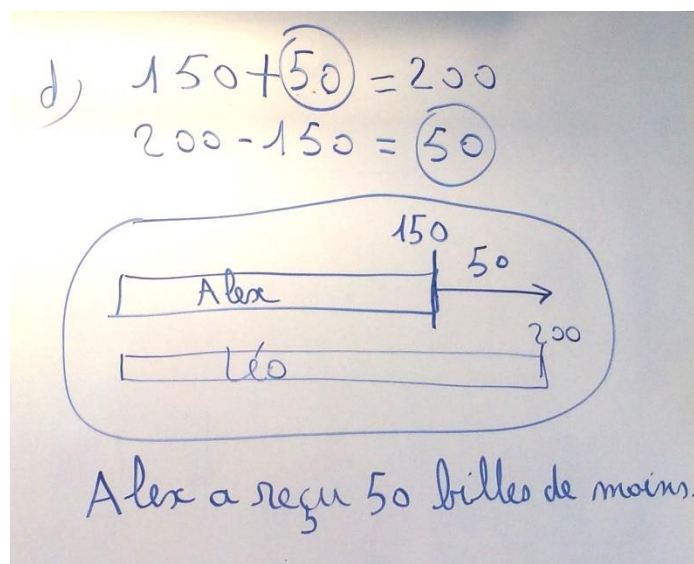 d) 150+50=200
200-150=50
150
50
Alex
200
Léo
Alex a reçu 50 billes de moins.